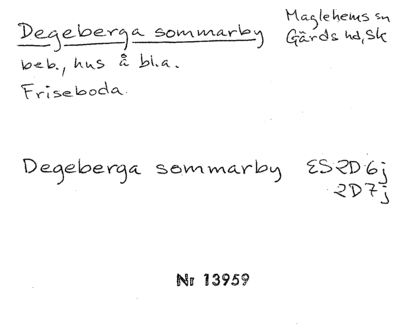 Degeberga sommarby
Maglehems sn
Gärds hd, Sk
beb., hus å bl.a.
Friseboda.
Degeberga sommarby ES 2D 6j
2D7j
Nr 13959